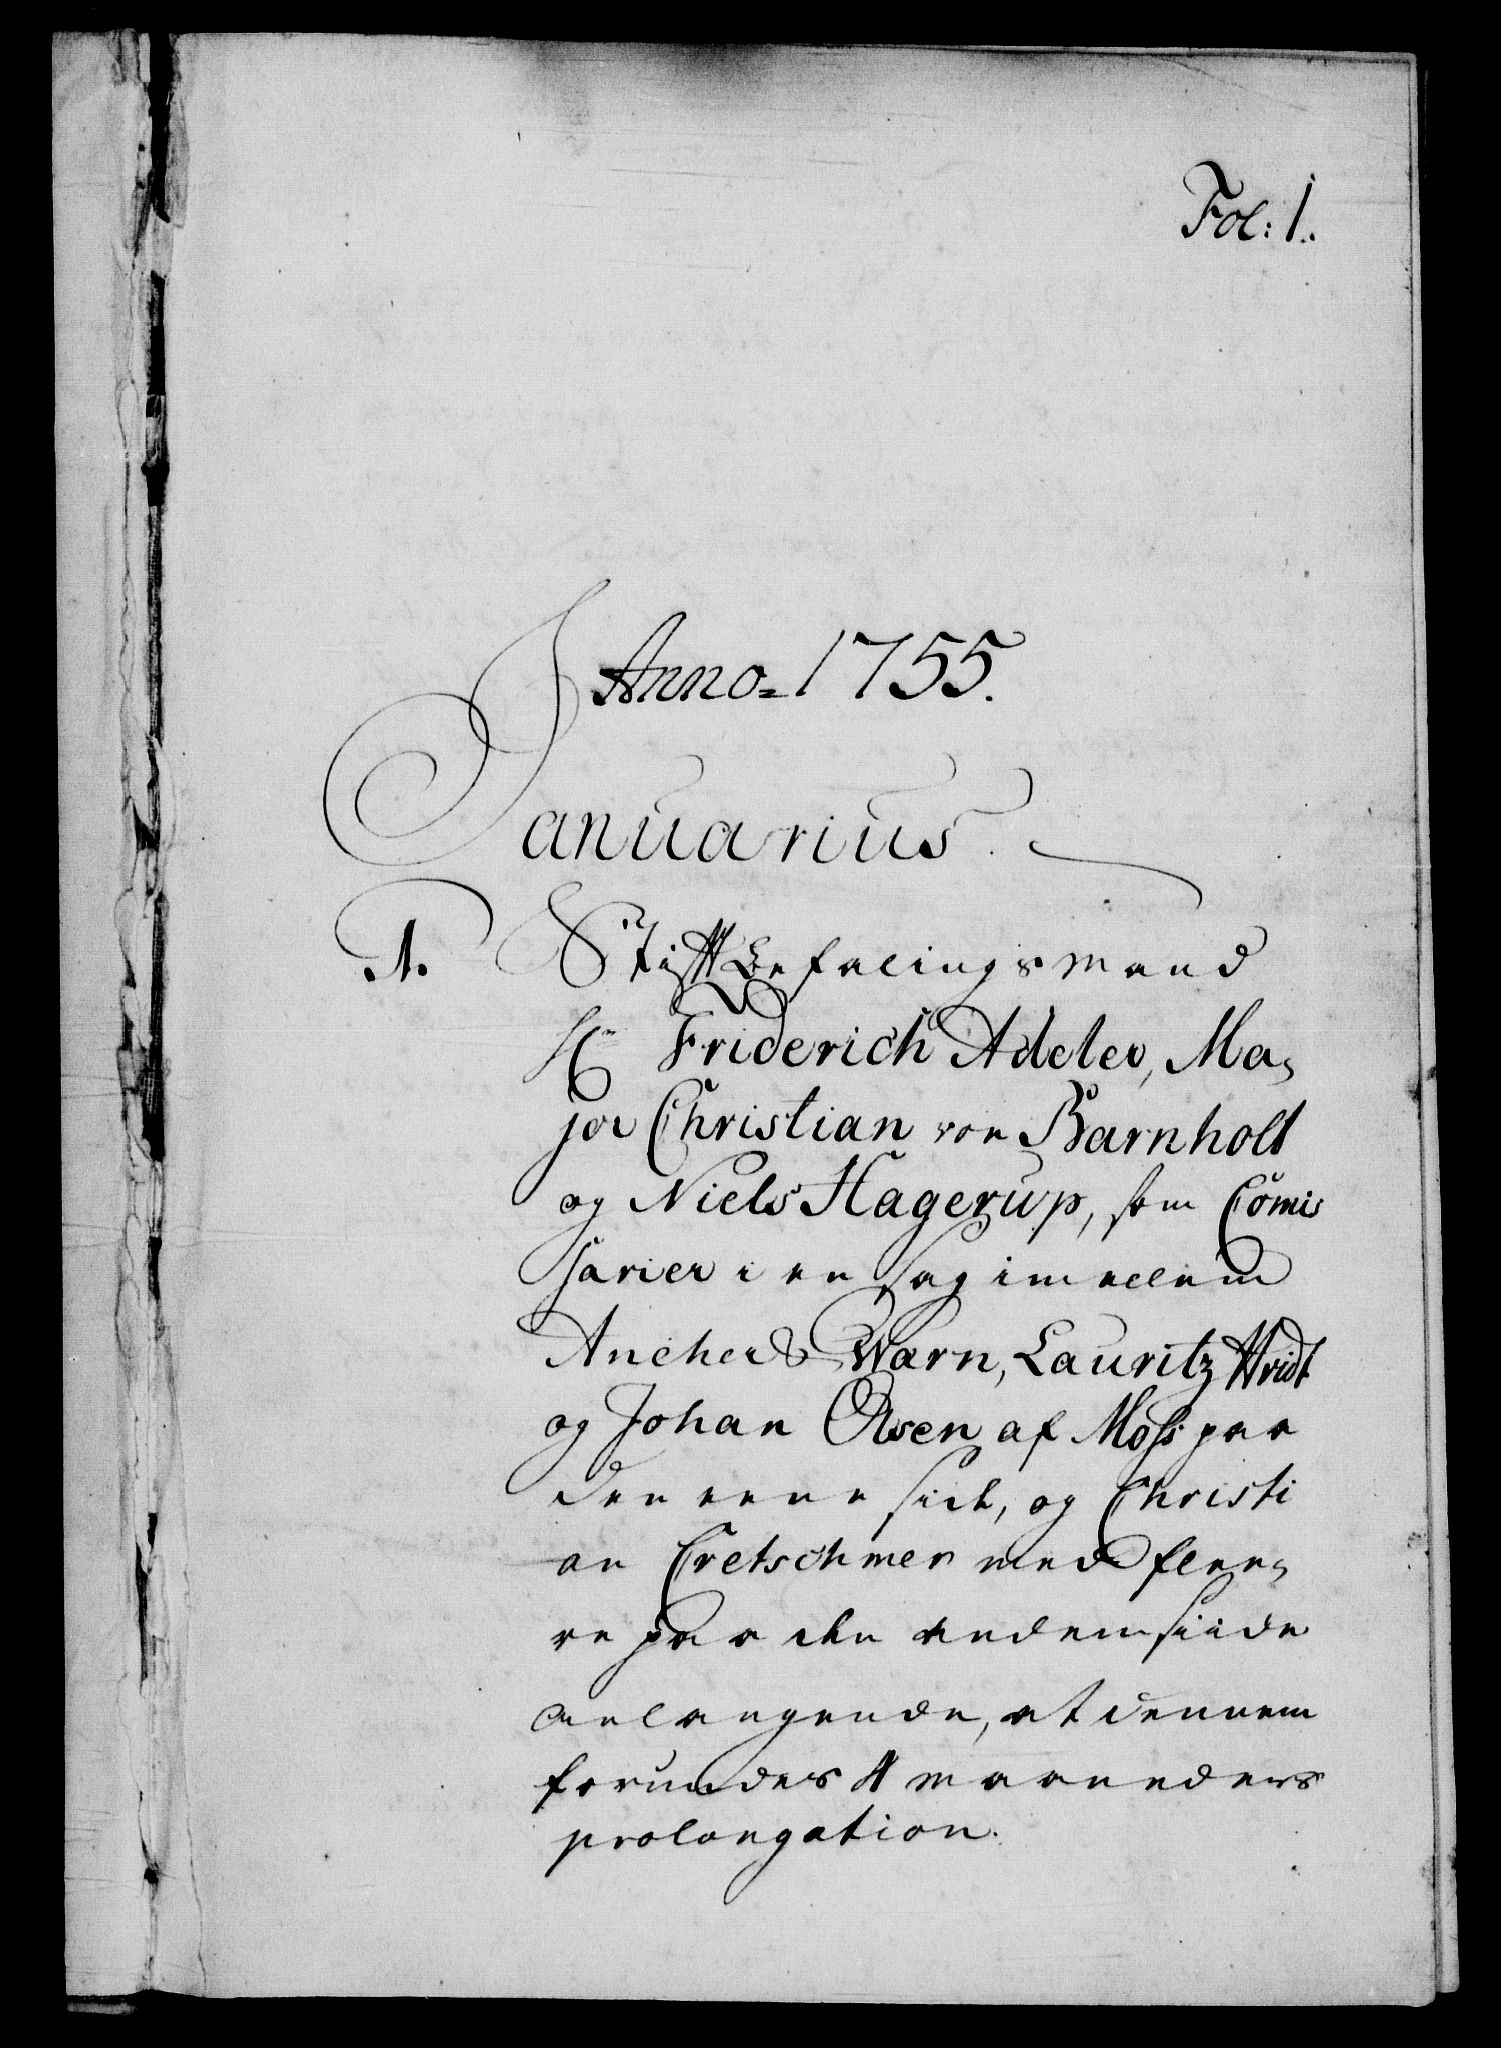 Fol: 1.
Anno = 1755.
Januarius
1. Stiftbefalingsmand
Hr Friderich Adeler, Ma=
jor Christian von Barnholt
og Niels Hagerup, som Com̃is
sarier i en sag imellem
Ancher & Wærn, Lauritz Hvidt
og Johan Olsen af Moss paa
den eene side, og Christi
an Cretschmer med flee=
re paa den anden siide
anlangende, at dennem
forundes 4 maaneders
prolongation.